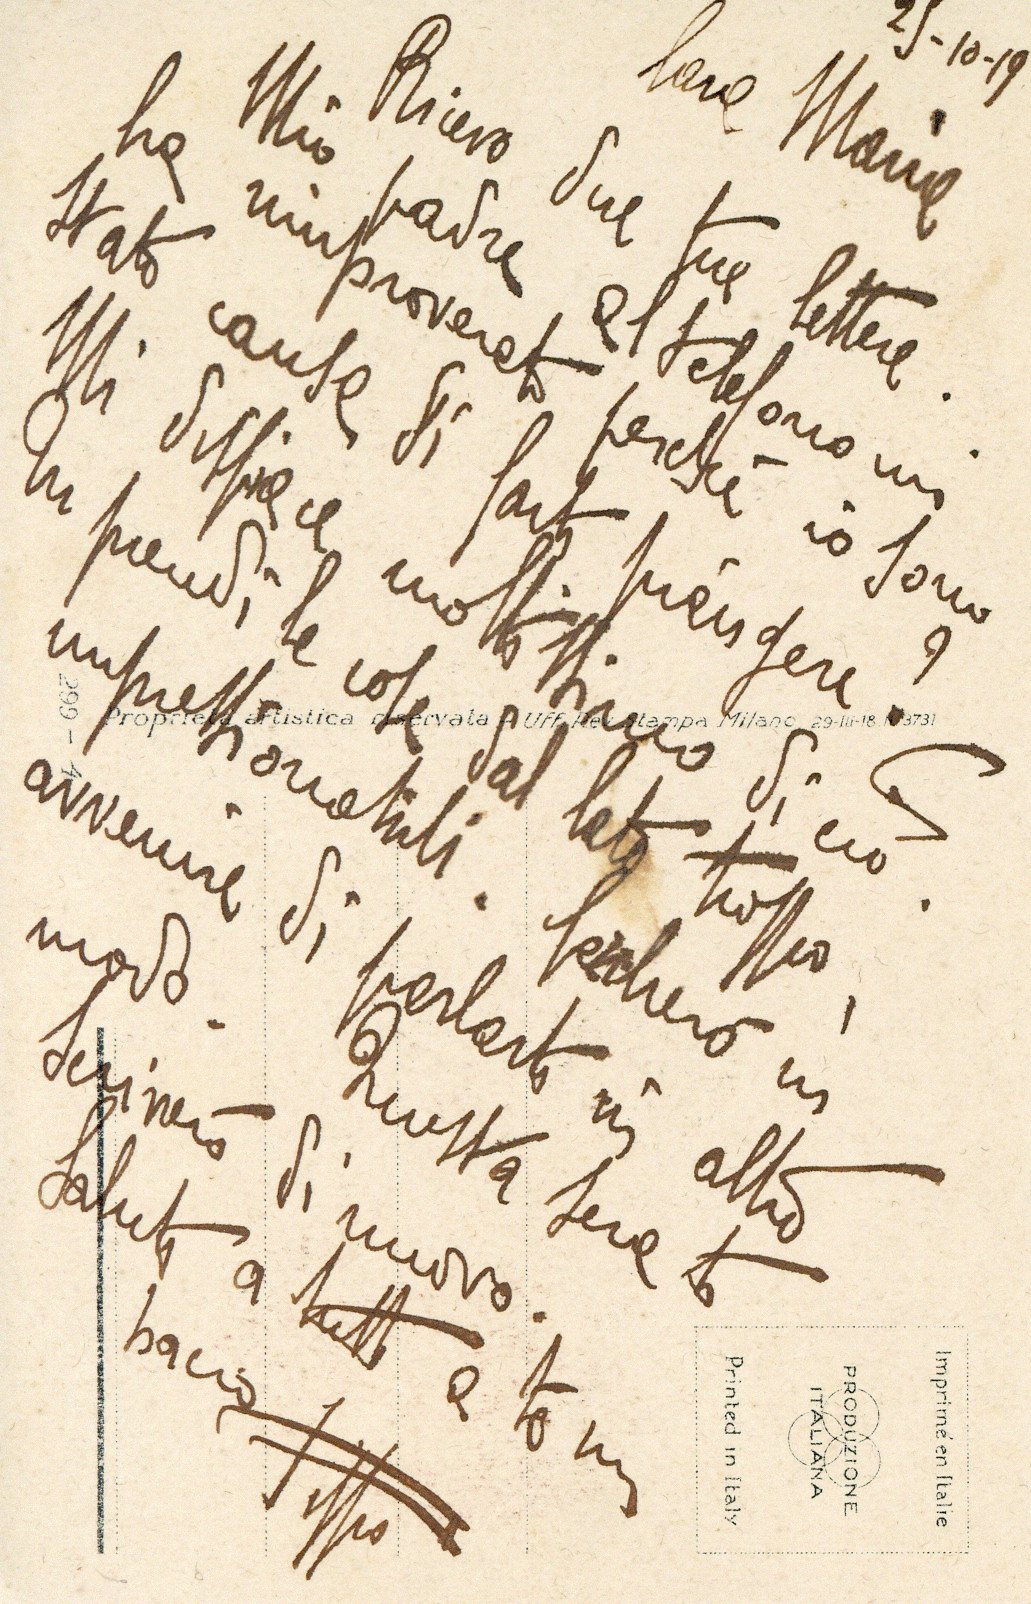 25-10-19
Cara Maria
Ricevo due tue lettere.
Mio padre al telefono mi
ha rimproverato perchè io sono
stato causa di farti piangere?
Mi dispiace moltissimo di ciò.
Tu prendi le cose dal lato troppo,
impressionabili. Cercherò in
avvenire di parlarti in altro
modo. Questa sera ti
scriverò di nuovo.
Saluti a tutti a te un
bacio
Pippo
Proprietà artistica riservata - Uff. Rev. Stampa Milano 29-III-18 N. 3731
299 - 4
Imprimé en Italie
PRODUZIONE
ITALIANA
Printed in Italy